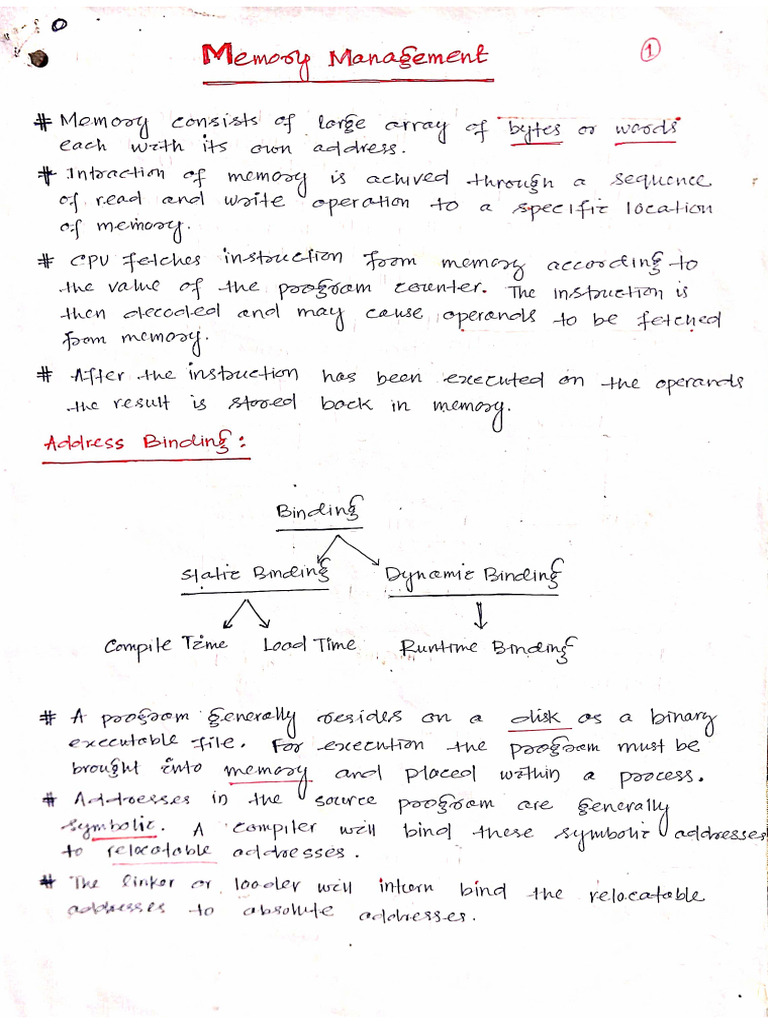 Memory Management
1
# Memory consists of large array of bytes or words
each with its own address.
# Intraction of memory is achived through a sequence
of read and write operation to a specific location
of memory.
# CPU fetches instruction from memory according to
the value of the program counter. The instruction is
then decoded and may cause operands to be fetched
from memory.
# After the instruction has been executed on the operands
the result is stored back in memory.
Address Binding:
Binding
Static Binding Dynamic Binding
Compile Time Load Time Runtime Binding
# A program generally resides on a disk as a binary
executable file. For execution the program must be
brought into memory and placed within a process.
# Addresses in the source program are generally
symbolic. A compiler will bind these symbolic addresses
to relocatable addresses.
# The linker or loader will intern bind the relocatable
addresses to absolute addresses.